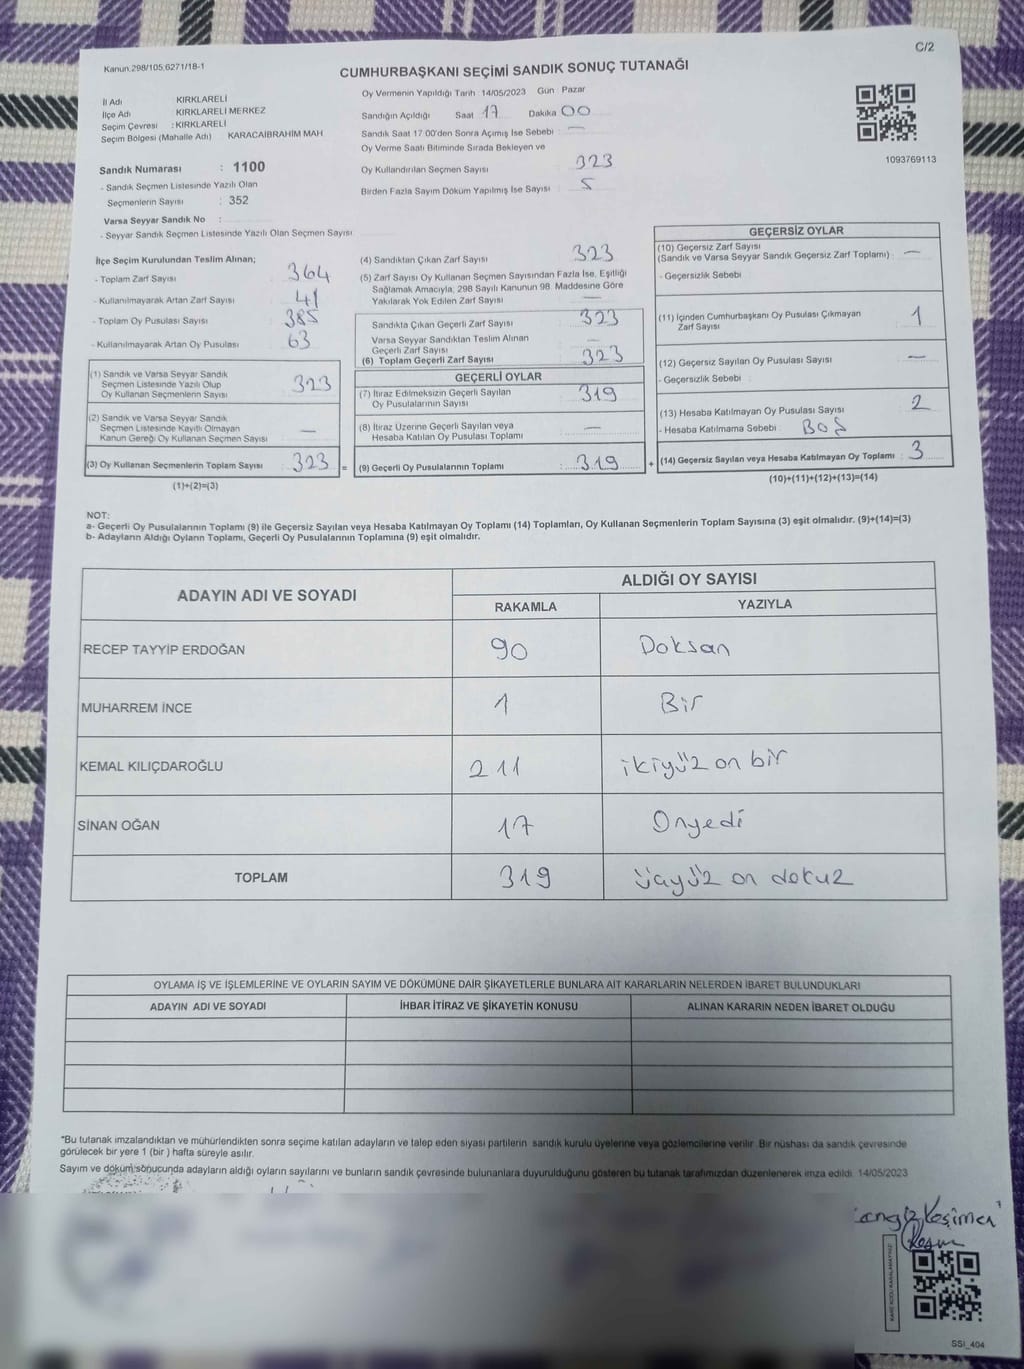 C/2
Kanun.298/105.6271/18-1
CUMHURBAŞKANI SEÇİMİ SANDIK SONUÇ TUTANAĞI
İl Adı KIRKLARELİ
İlçe Adı KIRKLARELİ MERKEZ
Seçim Çevresi : KIRKLARELİ
Seçim Bölgesi (Mahalle Adı) KARACAIBRAHİM MAH
Sandık Numarası : 1100
- Sandık Seçmen Listesinde Yazılı Olan
Seçmenlerin Sayısı : 352
Varsa Seyyar Sandık No :
- Seyyar Sandık Seçmen Listesinde Yazılı Olan Seçmen Sayısı
Oy Vermenin Yapıldığı Tarih : 14/05/2023 Gün Pazar
Sandığın Açıldığı Saat 17 Dakika 00
Sandık Saat 17:00'den Sonra Açımış İse Sebebi : —
Oy Verme Saati Bitiminde Sırada Bekleyen ve
Oy Kullandırılan Seçmen Sayısı 323
Birden Fazla Sayım Döküm Yapılmış İse Sayısı : 5
1093769113
İlçe Seçim Kurulundan Teslim Alınan;
- Toplam Zarf Sayısı 364
- Kullanılmayarak Artan Zarf Sayısı 41
- Toplam Oy Pusulası Sayısı 385
- Kullanılmayarak Artan Oy Pusulası 63
(1) Sandık ve Varsa Seyyar Sandık
Seçmen Listesinde Yazılı Olup
Oy Kullanan Seçmenlerin Sayısı 323
(2) Sandık ve Varsa Seyyar Sandık
Seçmen Listesinde Kayıtlı Olmayan
Kanun Gereği Oy Kullanan Seçmen Sayısı —
(3) Oy Kullanan Seçmenlerin Toplam Sayısı 323
(1)+(2)=(3)
(4) Sandıktan Çıkan Zarf Sayısı 323
(5) Zarf Sayısı Oy Kullanan Seçmen Sayısından Fazla İse, Eşitliği
Sağlamak Amacıyla; 298 Sayılı Kanunun 98. Maddesine Göre
Yakılarak Yok Edilen Zarf Sayısı —
Sandıkta Çıkan Geçerli Zarf Sayısı 323
Varsa Seyyar Sandıktan Teslim Alınan
Geçerli Zarf Sayısı —
(6) Toplam Geçerli Zarf Sayısı 323
GEÇERLİ OYLAR
(7) İtiraz Edilmeksizin Geçerli Sayılan
Oy Pusulalarının Sayısı 319
(8) İtiraz Üzerine Geçerli Sayılan veya
Hesaba Katılan Oy Pusulası Toplamı —
= (9) Geçerli Oy Pusulalarının Toplamı : 319
GEÇERSİZ OYLAR
(10) Geçersiz Zarf Sayısı
(Sandık ve Varsa Seyyar Sandık Geçersiz Zarf Toplamı) : —
- Geçersizlik Sebebi :
(11) İçinden Cumhurbaşkanı Oy Pusulası Çıkmayan
Zarf Sayısı 1
(12) Geçersiz Sayılan Oy Pusulası Sayısı —
- Geçersizlik Sebebi :
(13) Hesaba Katılmayan Oy Pusulası Sayısı 2
- Hesaba Katılmama Sebebi : BOŞ
+ (14) Geçersiz Sayılan veya Hesaba Katılmayan Oy Toplamı : 3
(10)+(11)+(12)+(13)=(14)
NOT:
a- Geçerli Oy Pusulalarının Toplamı (9) ile Geçersiz Sayılan veya Hesaba Katılmayan Oy Toplamı (14) Toplamları, Oy Kullanan Seçmenlerin Toplam Sayısına (3) eşit olmalıdır. (9)+(14)=(3)
b- Adayların Aldığı Oyların Toplamı, Geçerli Oy Pusulalarının Toplamına (9) eşit olmalıdır.
ADAYIN ADI VE SOYADI ALDIĞI OY SAYISI
RAKAMLA YAZIYLA
RECEP TAYYİP ERDOĞAN 90 Doksan
MUHARREM İNCE 1 Bir
KEMAL KILIÇDAROĞLU 211 ikiyüz on bir
SİNAN OĞAN 17 Onyedi
TOPLAM 319 üçyüz on dokuz
OYLAMA İŞ VE İŞLEMLERİNE VE OYLARIN SAYIM VE DÖKÜMÜNE DAİR ŞİKAYETLERLE BUNLARA AİT KARARLARIN NELERDEN İBARET BULUNDUKLARI
ADAYIN ADI VE SOYADI İHBAR İTİRAZ VE ŞİKAYETİN KONUSU ALINAN KARARIN NEDEN İBARET OLDUĞU
*Bu tutanak imzalandıktan ve mühürlendikten sonra seçime katılan adayların ve talep eden siyasi partilerin sandık kurulu üyelerine veya gözlemcilerine verilir. Bir nüshası da sandık çevresinde
görülecek bir yere 1 (bir) hafta süreyle asılır.
Sayım ve döküm sonucunda adayların aldığı oyların sayılarını ve bunların sandık çevresinde bulunanlara duyurulduğunu gösteren bu tutanak tarafımızdan düzenlenerek imza edildi. 14/05/2023
SSI_404